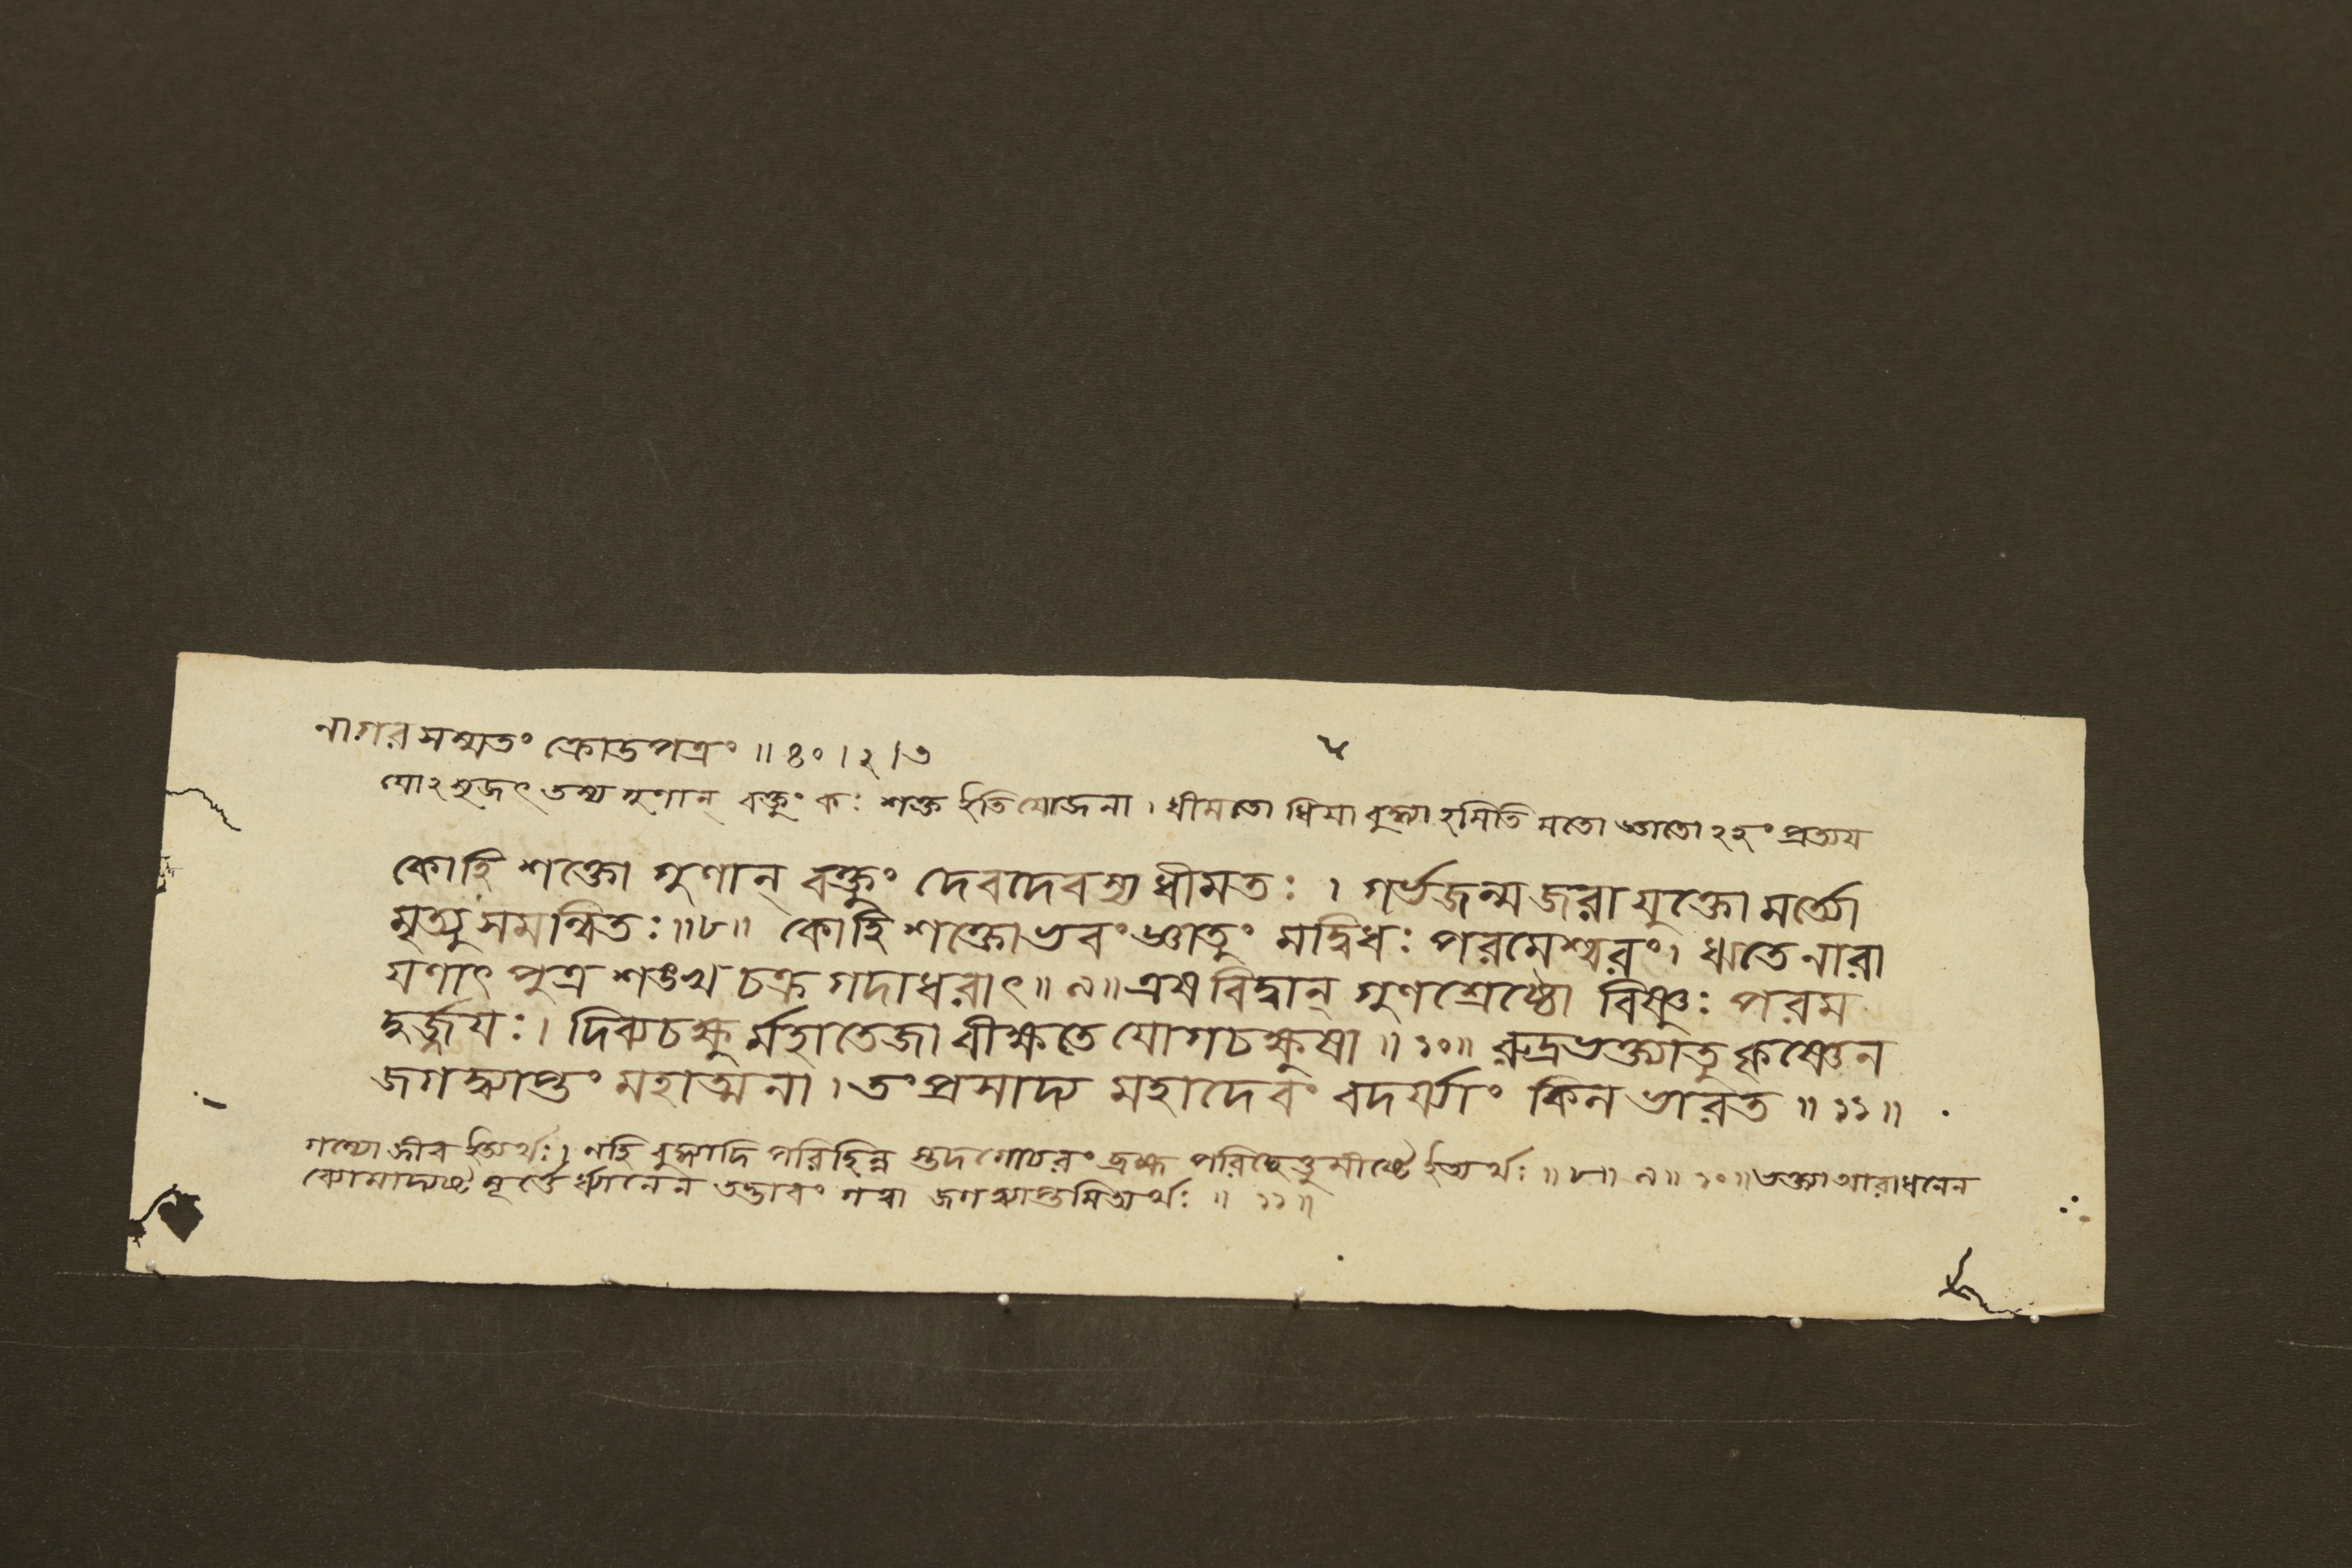 নাগরসম্মতং ক্রোডপত্রং ॥ ৪০ । ২ । ৩
যোঽসৃজৎ তস্য গুণান্ বক্তুং কঃ শক্ত ইতি যোজনা । ধীমতো ধিয়া বুদ্ধ্যাঽমিতি মতো জ্ঞাতোঽহং প্রত্যয
কোহি শক্তো গুণান্ বক্তুং দেবদেবস্য ধীমতঃ । গর্ভজন্মজরাযুক্তো মর্ত্যো
মৃত্যুসমন্বিতঃ ॥৮॥ কোহি শক্তো ভবং জ্ঞাতুং মদ্বিধঃ পরমেশ্বরং । ঋতে নারা
যণাৎ পুত্র শঙ্খচক্রগদাধরাৎ ॥ ৯ ॥ এষ বিদ্বান্ গুণশ্রেষ্ঠো বিষ্ণুঃ পরম
দুর্জ্জযঃ । দিব্যচক্ষুর্মহাতেজা বীক্ষতে যোগচক্ষুষা ॥ ১০ ॥ রুদ্রভক্ত্যাতু কৃষ্ণেন
জগদ্ব্যাপ্তং মহাত্মনা । তং প্রসাদ্য মহাদেবং বদর্য্যাং কিন ভারত ॥ ১১ ॥
গম্যো জীব ইত্যর্থঃ । নহি বুদ্ধ্যাদি পরিছিন্ন স্তদগোচরং ব্রহ্ম পরিছেত্তুমীষ্টে ইত্যর্থঃ ॥ ৮ ॥ ৯ ॥ ১০ ॥ ভক্ত্যা আরাধনেন
মূর্ত্তের্ধ্যানেন তদ্ভাবং গত্বা জগদ্ব্যাপ্তমিত্যর্থঃ ॥ ১১ ॥